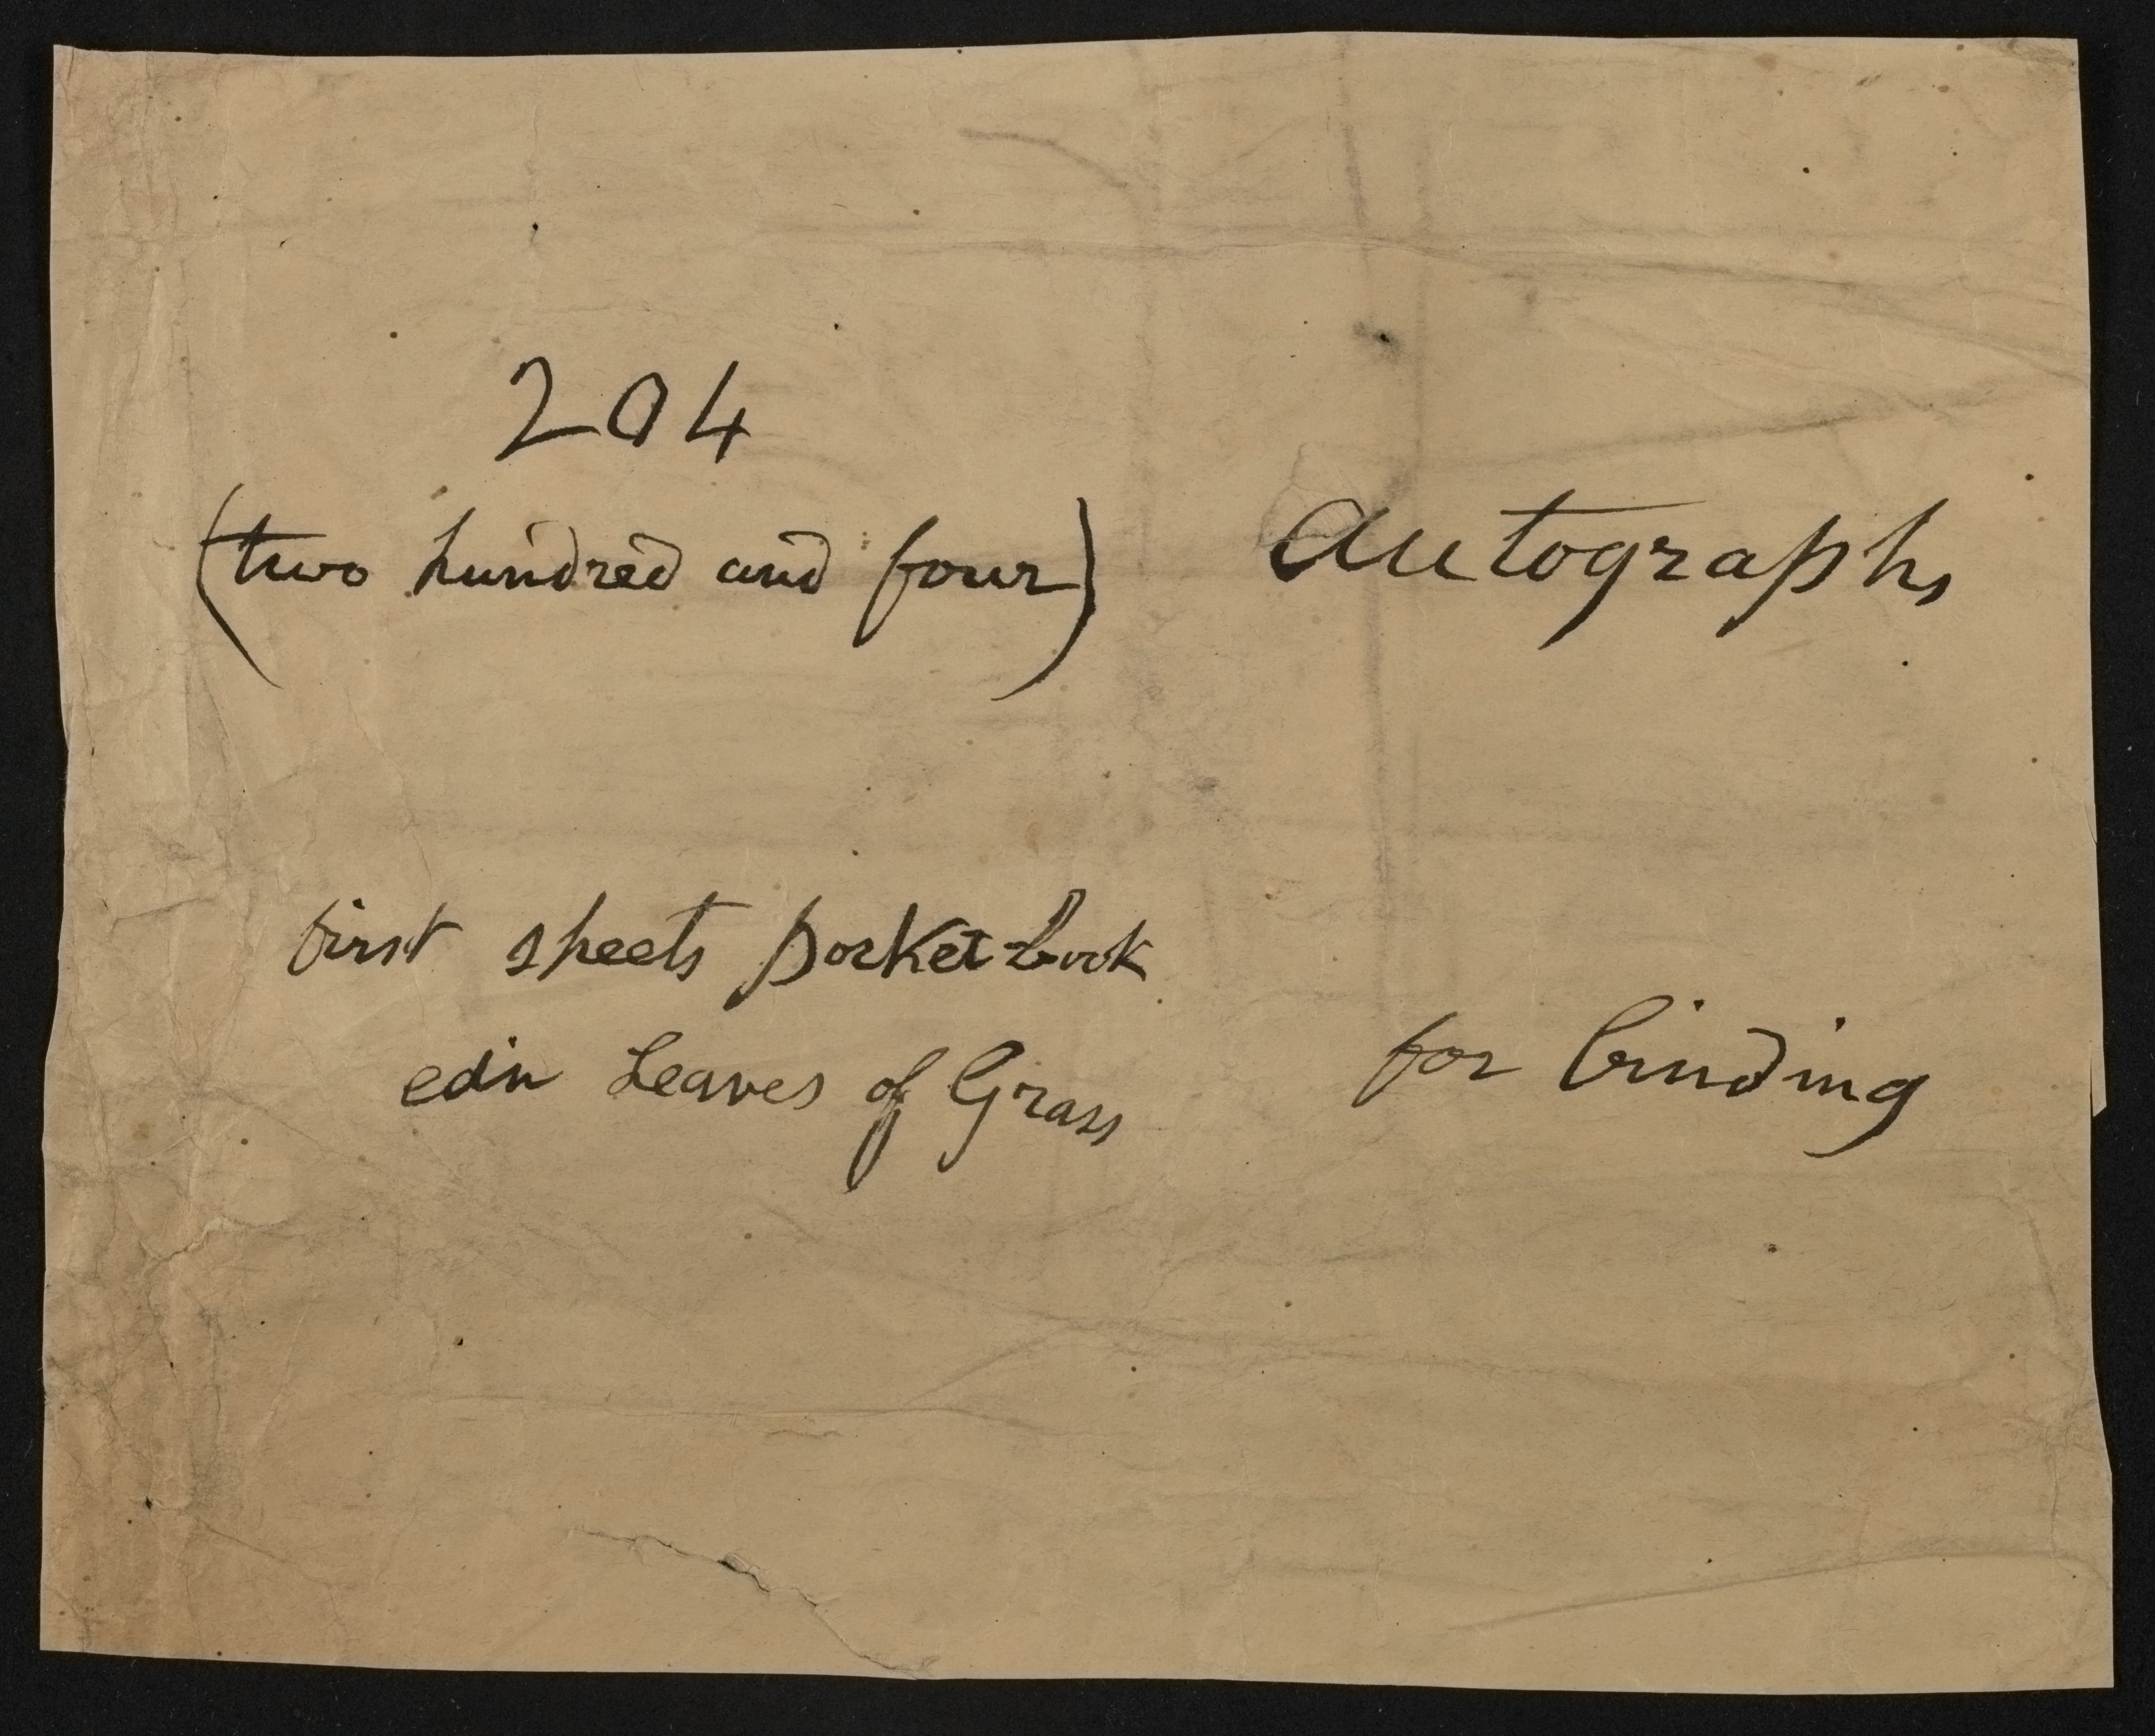 204
(two hundred and four) Autographs
first sheets pocket-book
edn Leaves of Grass for binding